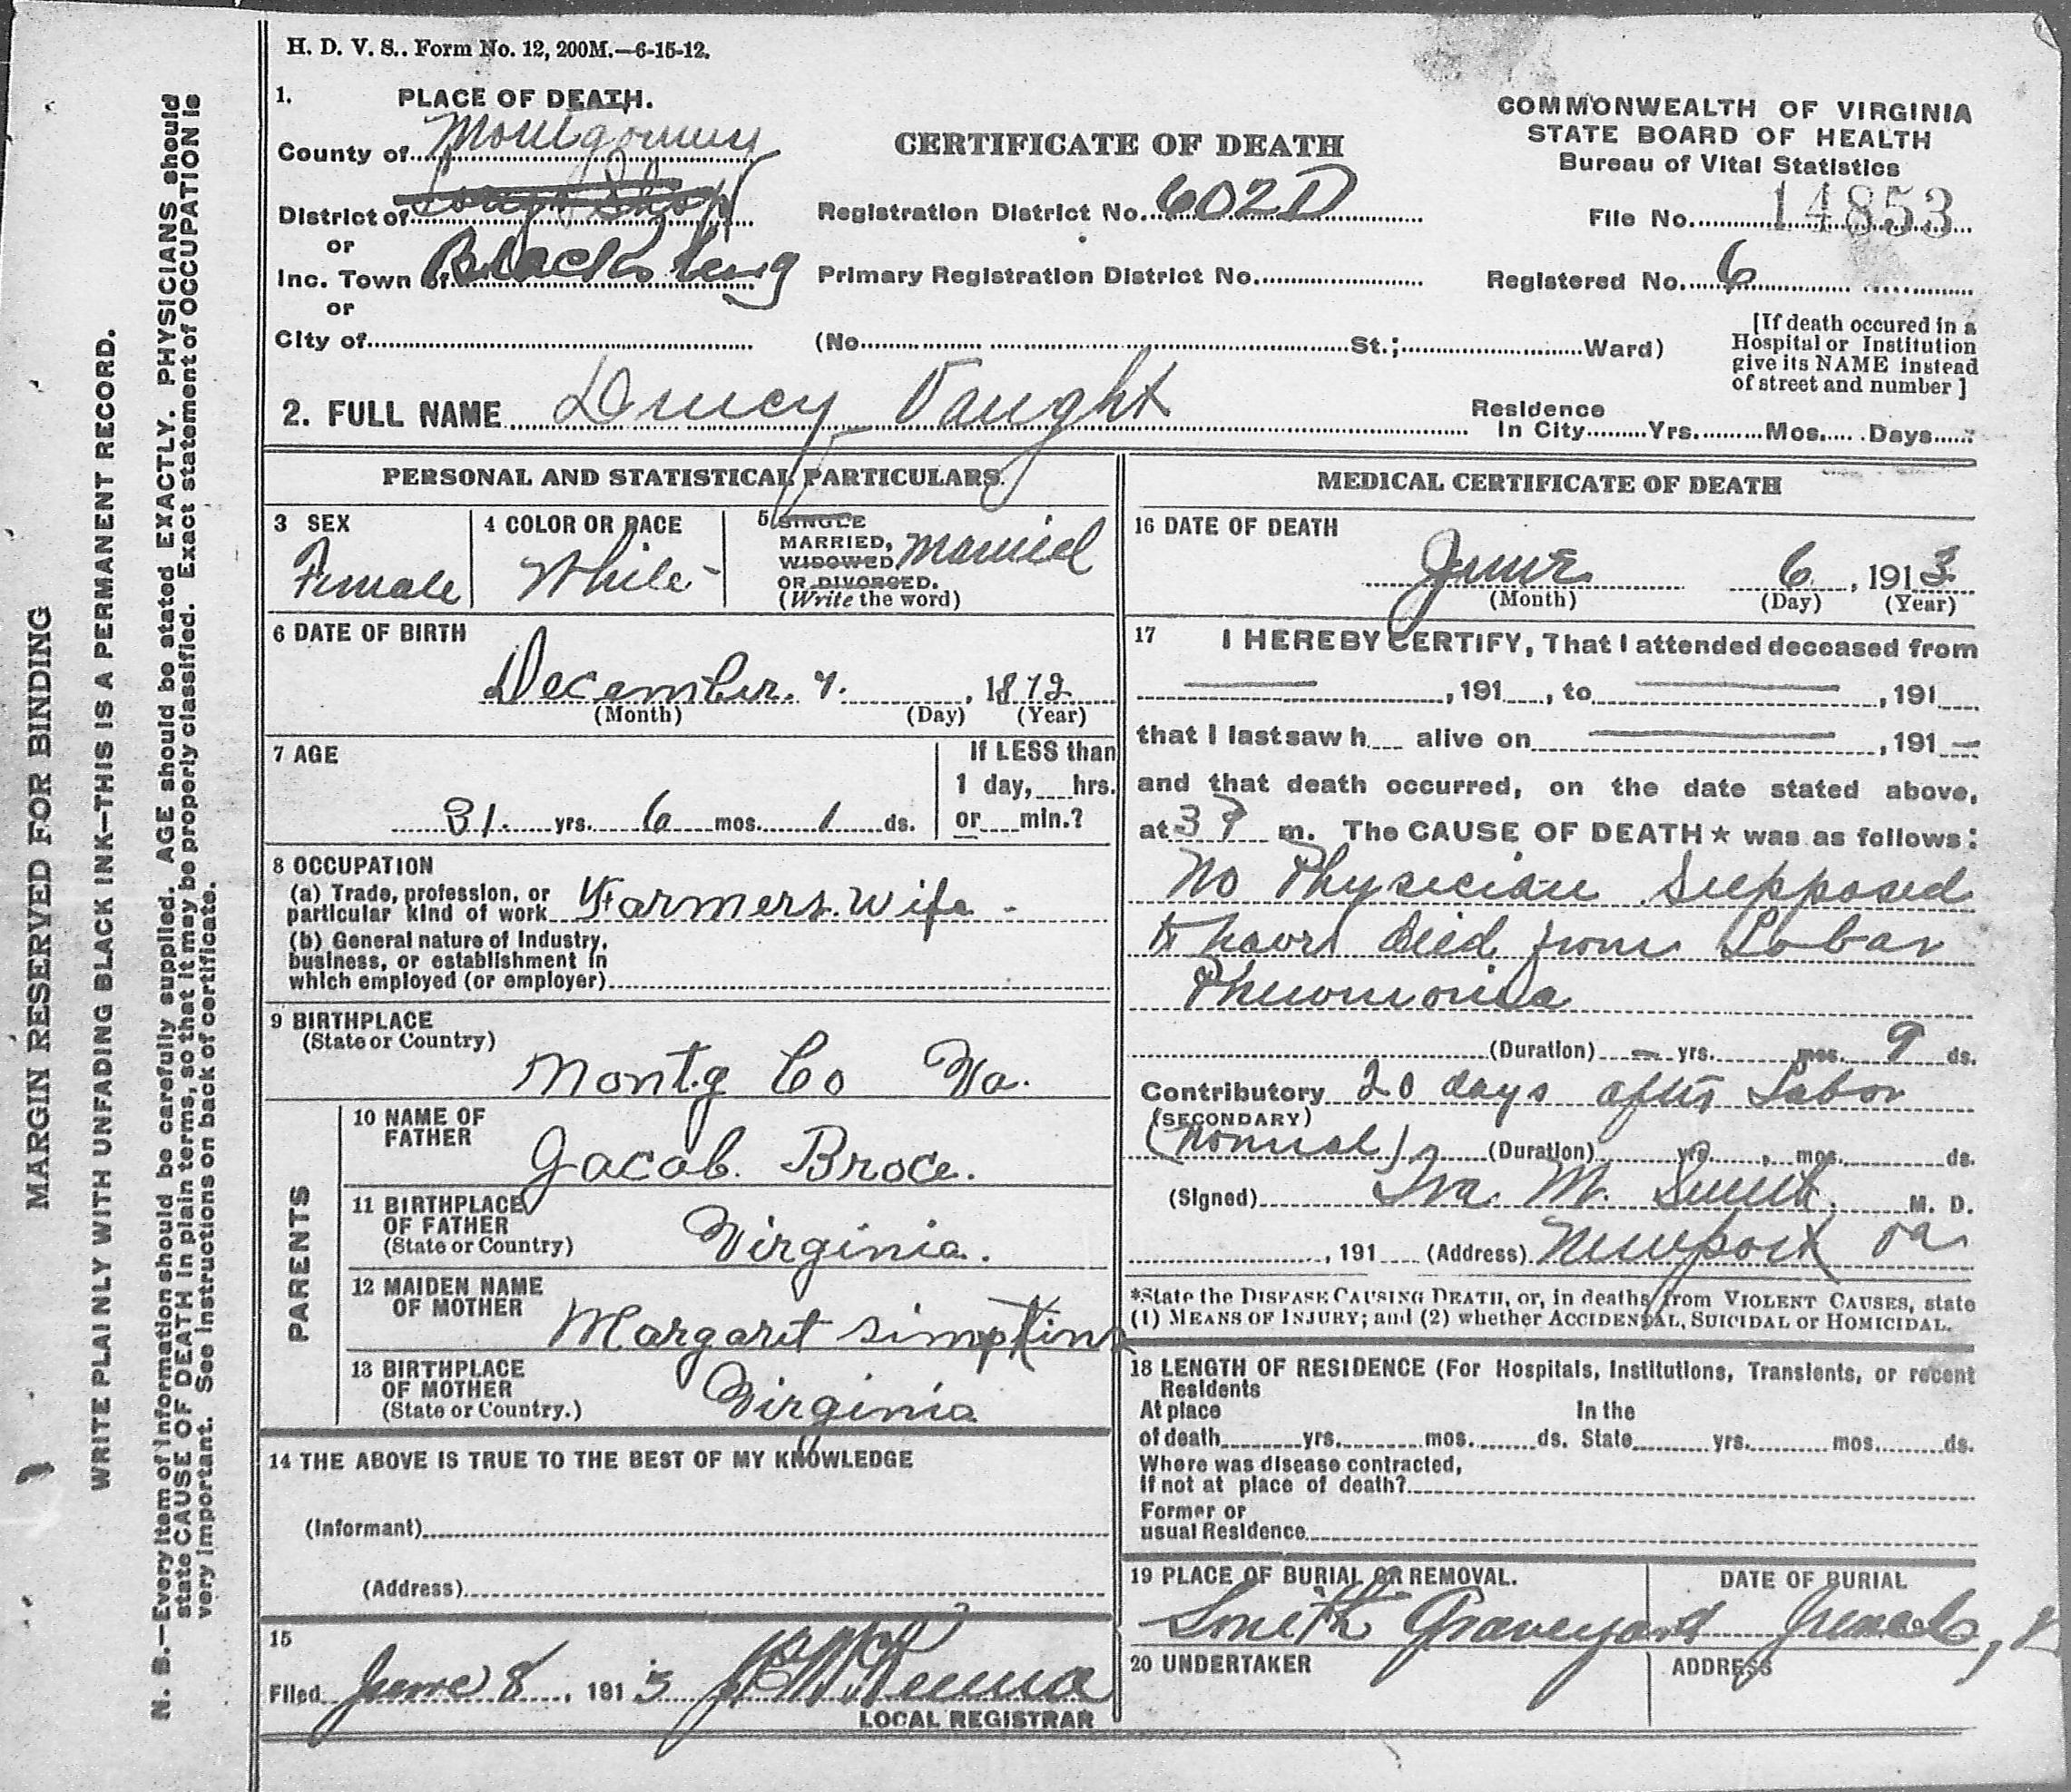 H. D. V. S.. Form No. 12, 200M.—6-15-12.
1. PLACE OF DEATH.
County of Montgomery
District of Long Shop
or
Inc. Town of Blacksburg
or
City of
CERTIFICATE OF DEATH
Registration District No. 602D
Primary Registration District No.
(No. St.; Ward)
COMMONWEALTH OF VIRGINIA
STATE BOARD OF HEALTH
Bureau of Vital Statistics
File No. 14853
Registered No. 6
[If death occured in a
Hospital or Institution
give its NAME instead
of street and number ]
2. FULL NAME Drucy Vaught
Residence
In City Yrs. Mos. Days
PERSONAL AND STATISTICAL PARTICULARS.
3 SEX
Female
4 COLOR OR RACE
White
5 SINGLE
MARRIED, Married
WIDOWED,
OR DIVORCED.
(Write the word)
6 DATE OF BIRTH
December. 7. , 1872
(Month) (Day) (Year)
7 AGE
31. yrs. 6 mos. 1 ds.
If LESS than
1 day, hrs.
or min.?
8 OCCUPATION
(a) Trade, profession, or
particular kind of work Farmers. Wife
(b) General nature of Industry,
business, or establishment in
which employed (or employer)
9 BIRTHPLACE
(State or Country)
Montg Co Va.
PARENTS
10 NAME OF
FATHER
Jacob. Broce.
11 BIRTHPLACE
OF FATHER
(State or Country)
Virginia.
12 MAIDEN NAME
OF MOTHER
Margaret Simpkins
13 BIRTHPLACE
OF MOTHER
(State or Country.)
Virginia
14 THE ABOVE IS TRUE TO THE BEST OF MY KNOWLEDGE
(Informant)
(Address)
15
Filed June 8, 1913
LOCAL REGISTRAR
MEDICAL CERTIFICATE OF DEATH
16 DATE OF DEATH
June 6, 1913
(Month) (Day) (Year)
17 I HEREBY CERTIFY, That I attended deceased from
, 191 , to , 191
that I last saw h alive on , 191
and that death occurred, on the date stated above,
at 3 P m. The CAUSE OF DEATH★ was as follows:
No Physician Supposed
to have died from Lobar
Pneumonia
(Duration) yrs. mos. 9 ds.
Contributory 20 days after Labor
(SECONDARY)
(Normal) (Duration) yrs. mos. ds.
(Signed) Ira M. M. D.
, 191 (Address) Newport Va
*State the DISEASE CAUSING DEATH, or, in deaths from VIOLENT CAUSES, state
(1) MEANS OF INJURY; and (2) whether ACCIDENTAL, SUICIDAL or HOMICIDAL.
18 LENGTH OF RESIDENCE (For Hospitals, Institutions, Transients, or recent
Residents
At place In the
of death yrs. mos. ds. State yrs. mos. ds.
Where was disease contracted,
If not at place of death?
Former or
usual Residence
19 PLACE OF BURIAL OR REMOVAL.
Smith Graveyard
DATE OF BURIAL
June
20 UNDERTAKER
ADDRESS
MARGIN RESERVED FOR BINDING
WRITE PLAINLY WITH UNFADING BLACK INK—THIS IS A PERMANENT RECORD.
N. B.—Every item of Information should be carefully supplied. AGE should be stated EXACTLY. PHYSICIANS should
state CAUSE OF DEATH in plain terms, so that it may be properly classified. Exact statement of OCCUPATION is
very important. See instructions on back of certificate.